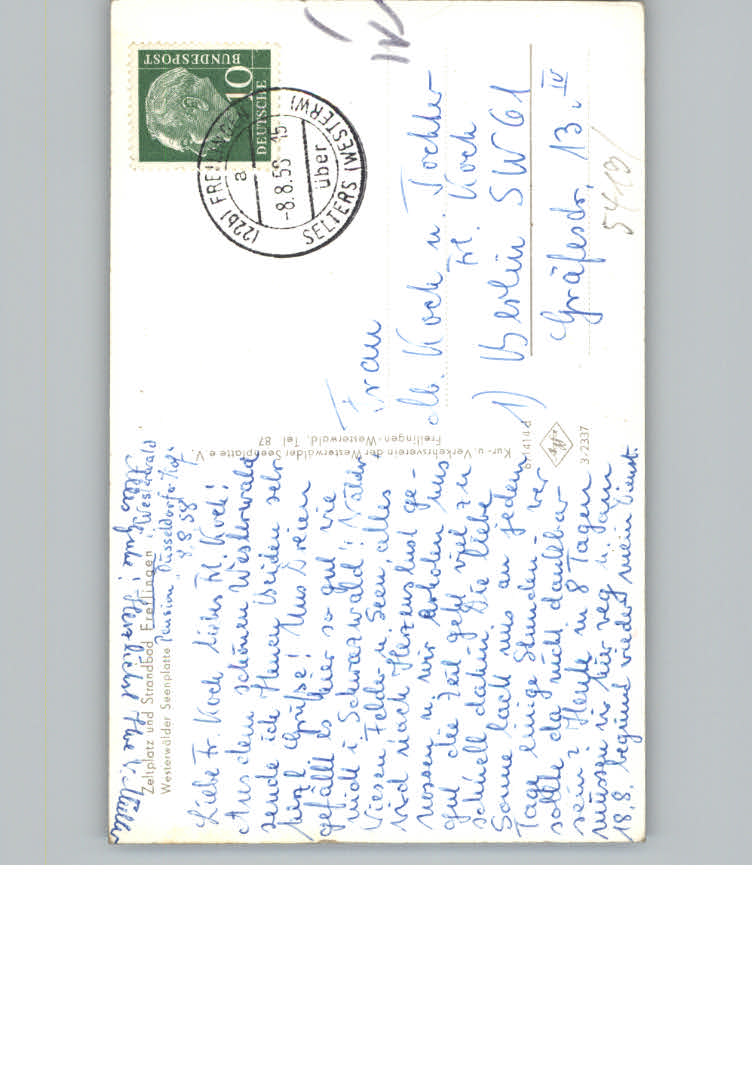 Zeltplatz und Strandbad Freilingen i. Westerwald
Westerwälder Seenplatte Pension "Düsseldorfer Hof"
8.8.58
Liebe Fr. Koch, liebes Frl. Koch!
Aus dem schönen Westerwald
sende ich Ihnen Beiden sehr
herzl. Grüße! Uns Dreien
gefällt es hier so gut wie
nicht i. Schwarzwald! Wälder
Wiesen, Felder u. Seen, alles
wird nach Herzenslust ge-
nossen u. wir erholen uns
gut die Zeit geht viel zu
schnell dahin. Die liebe
Sonne lacht uns an jedem
Tage einige Stunden - wer
sollte da nicht dankbar
sein? Heute in 8 Tagen
müssen wir hier weg u. dann
18.8. beginnt wieder mein Dienst.
Alles Gute! Herzlichst Ihre E. Müller
Kur- u. Verkehrsverein der Westerwälder Seenplatte e.V.
Freilingen-Westerwald, Tel. 87
6-1414d
Agfa
3-2337
DEUTSCHE
BUNDESPOST
10
(22b) FREILINGEN
a
-8.8.58-15
über
SELTERS (WESTERW)
Frau
Alb. Koch u. Tochter
Frl. Koch
1) Berlin SW 61
Gräfestr. 13. IV
5410/